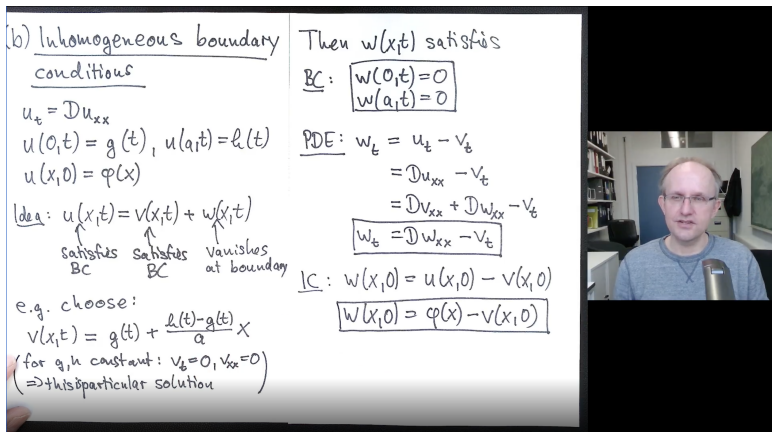 (b) Inhomogeneous boundary
conditions
u_t = Du_xx
u(0,t) = g(t), u(a,t) = h(t)
u(x,0) = φ(x)
Idea: u(x,t) = v(x,t) + w(x,t)
satisfies BC
satisfies BC
vanishes at boundary
e.g. choose:
v(x,t) = g(t) + (h(t)-g(t))/a x
(for g,h constant: v_t=0, v_xx=0
⇒ this is particular solution)
Then w(x,t) satisfies
BC: w(0,t)=0
w(a,t)=0
PDE: w_t = u_t - v_t
= Du_xx - v_t
= Dv_xx + Dw_xx - v_t
w_t = Dw_xx - v_t
IC: w(x,0) = u(x,0) - v(x,0)
w(x,0) = φ(x) - v(x,0)